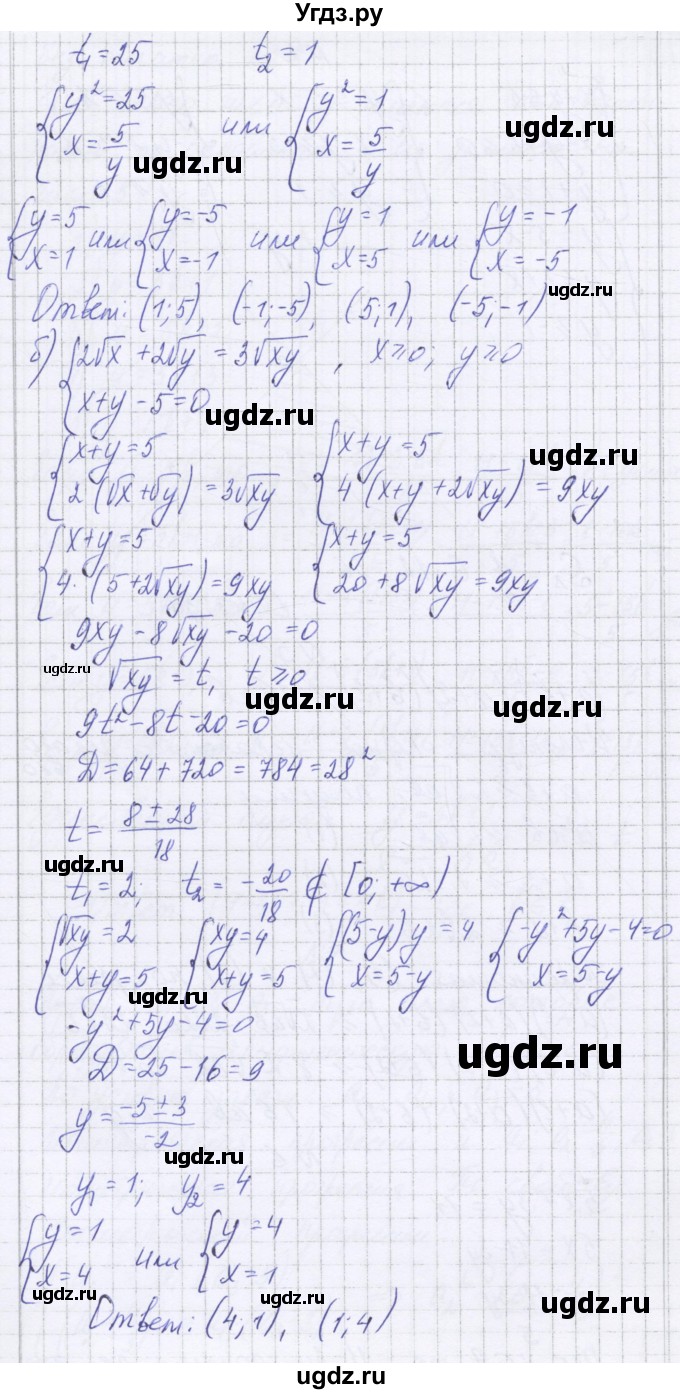 Угдз.ру
t₁ = 25   t₂ = 1
{y² = 25; x = 5/y   или   {y² = 1; x = 5/y
ugdz.ru
ugdz.ru
{y = 5; x = 1 или {y = -5; x = -1   или   {y = 1; x = 5   или   {y = -1; x = -5
ugdz.ru
Ответ: (1;5), (-1;-5), (5;1), (-5;-1)
б) {2√x + 2√y = 3√xy; x+y-5=0 , x⩾0; y⩾0
ugdz.ru
{x+y=5; 2(√x+√y)=3√xy   {x+y=5; 4(x+y+2√xy)=9xy
ugdz.ru
{x+y=5; 4·(5+2√xy)=9xy   {x+y=5; 20+8√xy=9xy
9xy-8√xy-20=0
ugdz.ru
√xy = t, t⩾0
ugdz.ru
ugdz.ru
9t²-8t-20=0
D=64+720=784=28²
t= (8±28)/18
ugdz.ru
t₁=2; t₂= -20/18 ∉ [0; +∞)
{√xy=2; x+y=5   {xy=4; x+y=5   {(5-y)y=4; x=5-y   {-y²+5y-4=0; x=5-y
ugdz.ru
-y²+5y-4=0
ugdz.ru
D=25-16=9
y= (-5±3)/-2
ugdz.ru
y₁=1; y₂=4
{y=1; x=4   или   {y=4; x=1
ugdz.ru
ugdz.ru
ugdz.ru
Ответ: (4;1), (1;4)
ugdz.ru